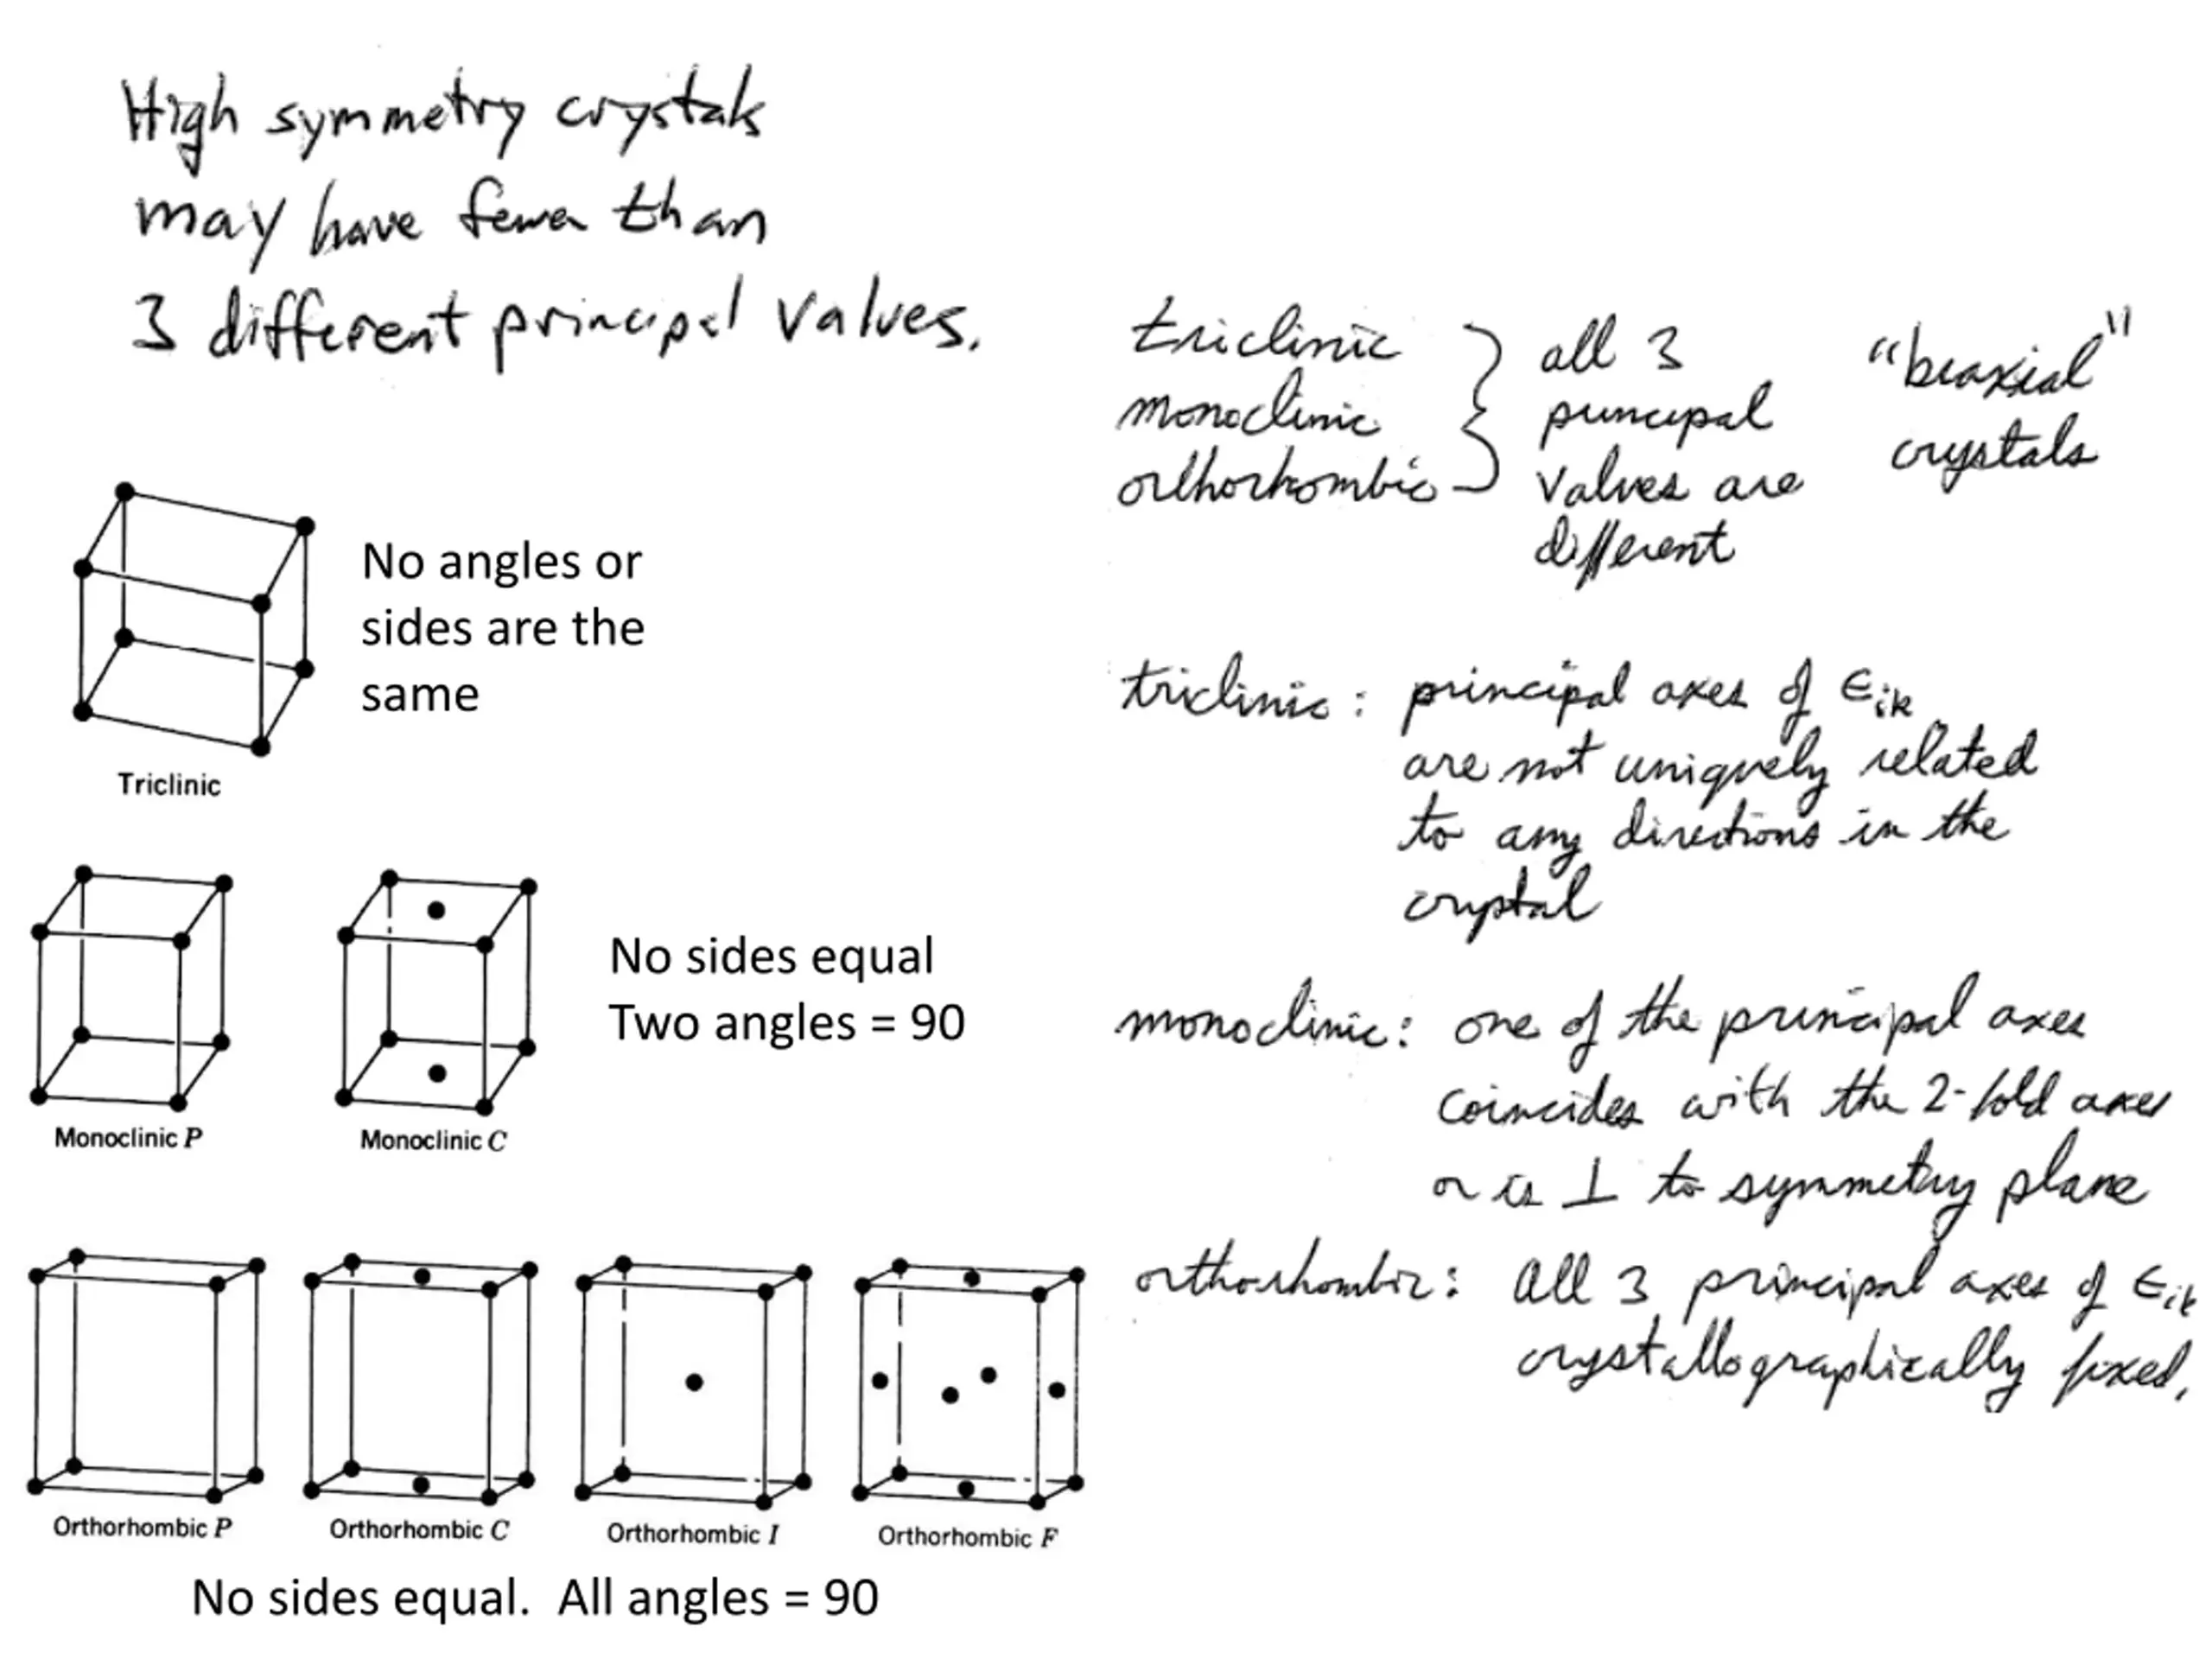 High symmetry crystals
may have fewer than
3 different principal values.
triclinic } all 3 "biaxial"
monoclinic principal crystals
orthorhombic values are
different
No angles or
sides are the
same
Triclinic
triclinic: principal axes of ϵik
are not uniquely related
to any directions in the
crystal
No sides equal
Two angles = 90
Monoclinic P
Monoclinic C
monoclinic: one of the principal axes
coincides with the 2-fold axes
or is ⊥ to symmetry plane
orthorhombic: All 3 principal axes of ϵik
crystallographically fixed.
Orthorhombic P
Orthorhombic C
Orthorhombic I
Orthorhombic F
No sides equal. All angles = 90